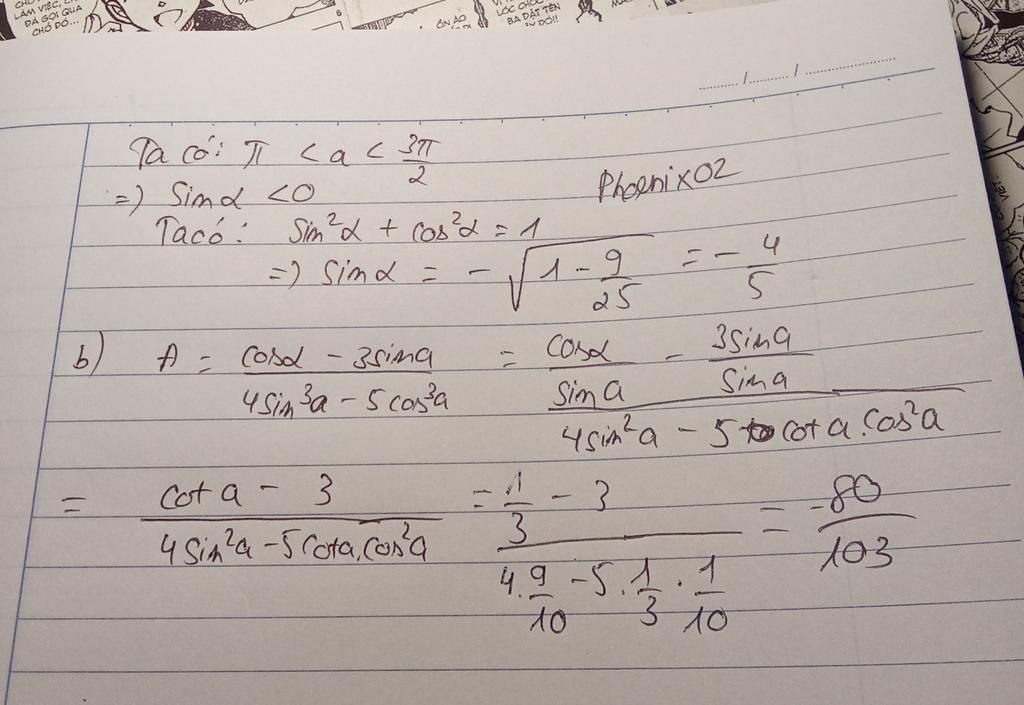 LÀM VIỆC,
ĐÃ GỌI QUA
CHỖ ĐÓ...
ỒN ÀO
LÓC CHÓC
BA ĐẶT TÊN
....... / ....... / ..............
Ta có: π < a < 3π/2
=) Sinα < 0
PhoenixO2
Ta có: Sin²α + cos²α = 1
=) Sinα = - √(1 - 9/25) = - 4/5
b) A = (cosα - 3sina)/(4sin³a - 5cos³a) = (cosα/sina - 3sina/sina)/(4sin²a - 5 cota.cos²a)
= (cota - 3)/(4sin²a - 5cota.cos²a) = (1/3 - 3)/(4.9/10 - 5.1/3.1/10) = -80/103